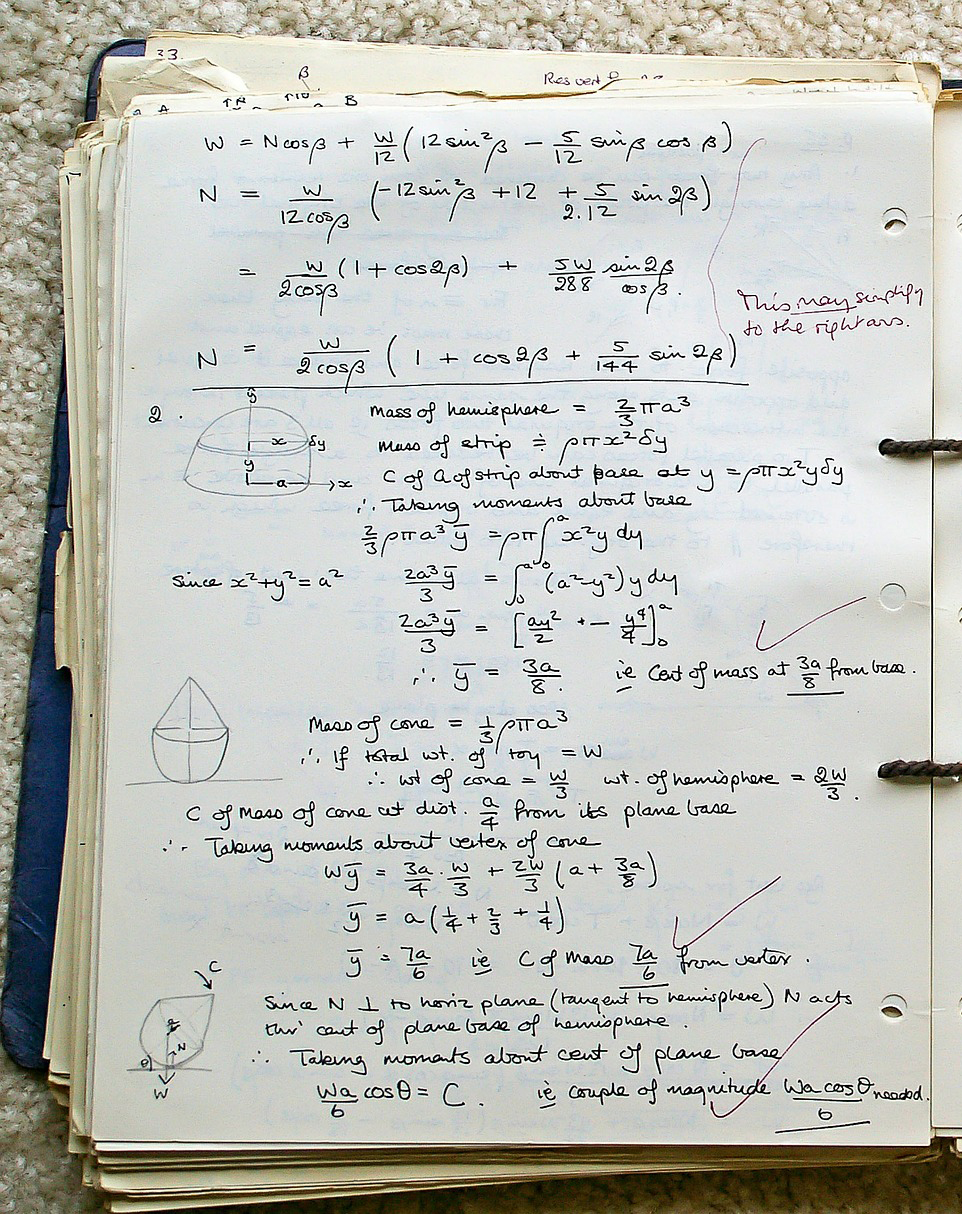 33.
β
Res vert
A
B
W = N cos β + W/12 (12 sin²β − 5/12 sin β cos β)
N = W/(12 cos β) (−12 sin²β + 12 + 5/(2.12) sin 2β)
= W/(2cos β) (1 + cos 2β) + 5W/288 sin 2β/cos β.
This may simplify
to the right ans.
N = W/(2 cos β) (1 + cos 2β + 5/144 sin 2β)
2.
ŷ
x δy
y
a → x
Mass of hemisphere = 2/3 πa³
Mass of strip ≑ ρπx²δy
C of G of strip about base at y = ρπx²yδy
∴ Taking moments about base
2/3 ρπa³ȳ = ρπ∫₀ᵃ x²y dy
Since x²+y² = a² 2a³ȳ/3 = ∫₀ᵃ (a²−y²) y dy
2a³ȳ/3 = [ay²/2 − y⁴/4]₀ᵃ
∴ ȳ = 3a/8. ie Cent of mass at 3a/8 from base.
Mass of cone = 1/3 ρπa³
∴ If total wt. of toy = W
∴ wt of cone = W/3 wt. of hemisphere = 2W/3.
C of Mass of cone at dist. a/4 from its plane base
∴ Taking moments about vertex of cone
Wȳ = 3a/4 . W/3 + 2W/3 (a + 3a/8)
ȳ = a(1/4 + 2/3 + 1/4)
ȳ = 7a/6 ie C of Mass 7a/6 from vertex.
C
N
θ
W
Since N ⊥ to horiz plane (tangent to hemisphere) N acts
thr' cent of plane base of hemisphere.
∴ Taking moments about cent of plane base
Wa/6 cos θ = C. ie couple of magnitude Wa cos θ/6 needed.